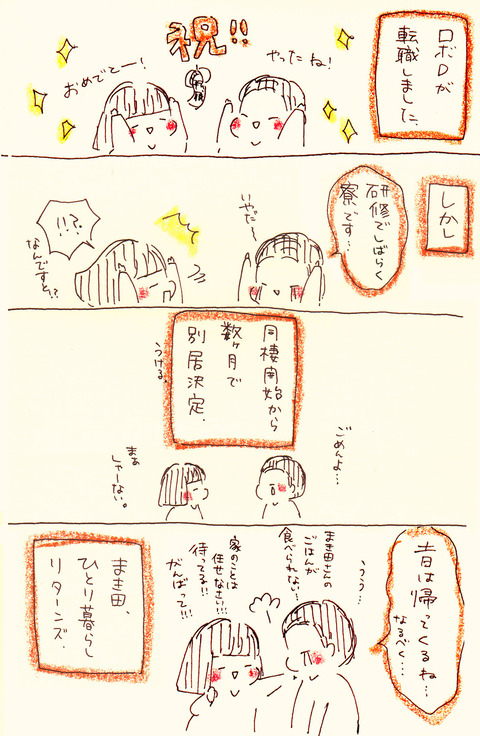 ロボDが
転職しました。
祝!!
やったね!
おめでとー!
しかし
研修でしばらく
寮です…
いやだ〜
!!?
なんですと!?
同棲開始から
数ヶ月で
別居決定.
うける.
ごめんよ…
まぁ
しゃーない。
は帰ってくるね…
なるべく…
うう…
まき田さんの
ごはんが
食べられない…
家のことは
任せなさい!!!
待ってる!!
がんばって!!!
まき田、
ひとり暮らし
リターンズ.